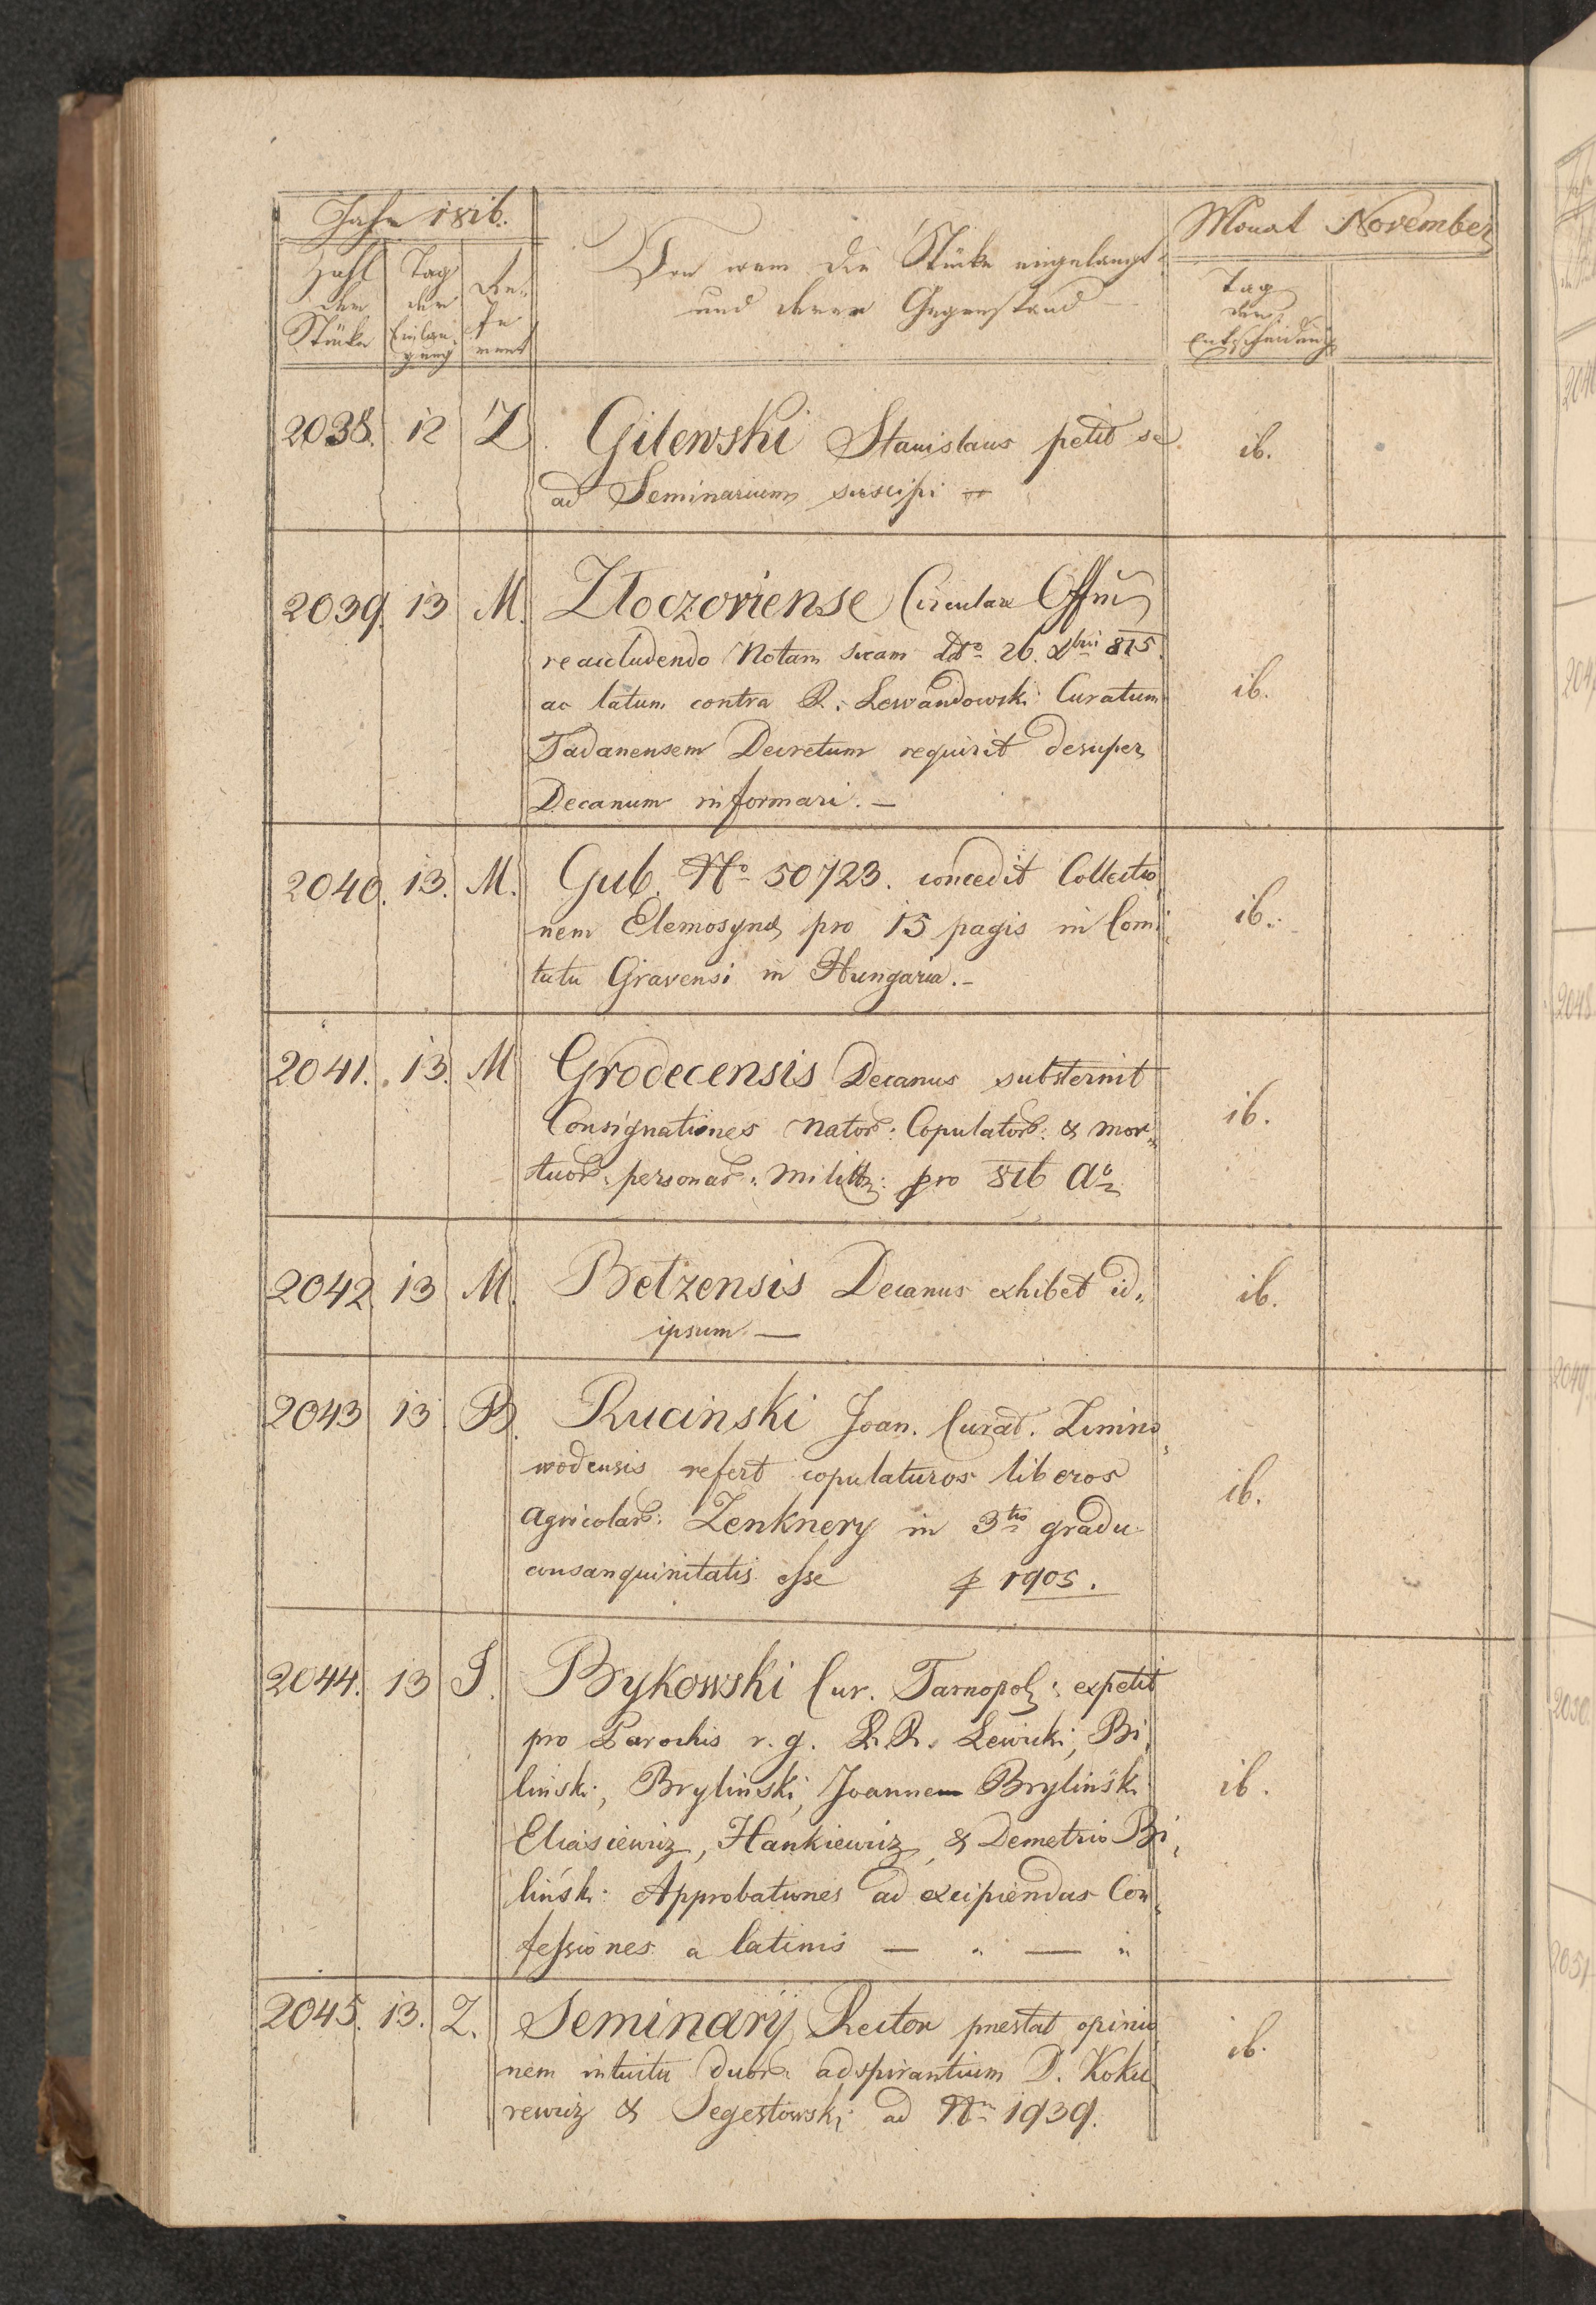 Jahr 1816. Monat November
Zahl der Stücke
Tag der Einlangung
Refe
rent
Von wem die Stücke eingelangt
und deren Gegenstand
Tag
der
Entscheidung
2038. 12 Z. Gilewski Stanislaus petit se ib.
ad Seminarium suscipi
2039. 13 M. Złoczoviense Circulare Offiu
reaccludendo Notam suam ddto 26. Xbri 815.
ac latum contra R. Lewandowski Curatum ib.
Tadanensem Decretum requirit desuper
Decanum informari. —
2040. 13. M. Gub. No 50723. concedit Collectio
nem Elemosynae pro 15 pagis in Comi ib.
tatu Gravensi in Hungaria. -
2041. 13. M Grodecensis Decanus substernit
Consignationes Nator: Copulator: & mor ib.
tuor: personar: Militt: pro 816 Ao
2042 13 M. Betzensis Decanus exhibet id ib.
ipsum —
2043 13 B. Rucinski Joan. Curat. Zimno
wodensis refert copulaturos liberos ib.
Agricolar: Zenknery in 3tio gradu
consanguinitatis esse p 1905.
2044. 13 J. Bykowski Cur. Tarnopol: expetit
pro Parochis r. g. R.R. Lewicki, Bi
linski, Bryliński, Joannem Bryliński ib.
Eliasiewicz, Hankiewicz, & Demetrio Bi
liński Approbationes ad excipiendas Con
fessiones a latinis — " — "
2045. 13. Z. Seminarÿ Rector praestat opinio
nem intuitu duor: adspirantium D. Koku ib.
rewicz & Segestowski ad Nrm 1939.